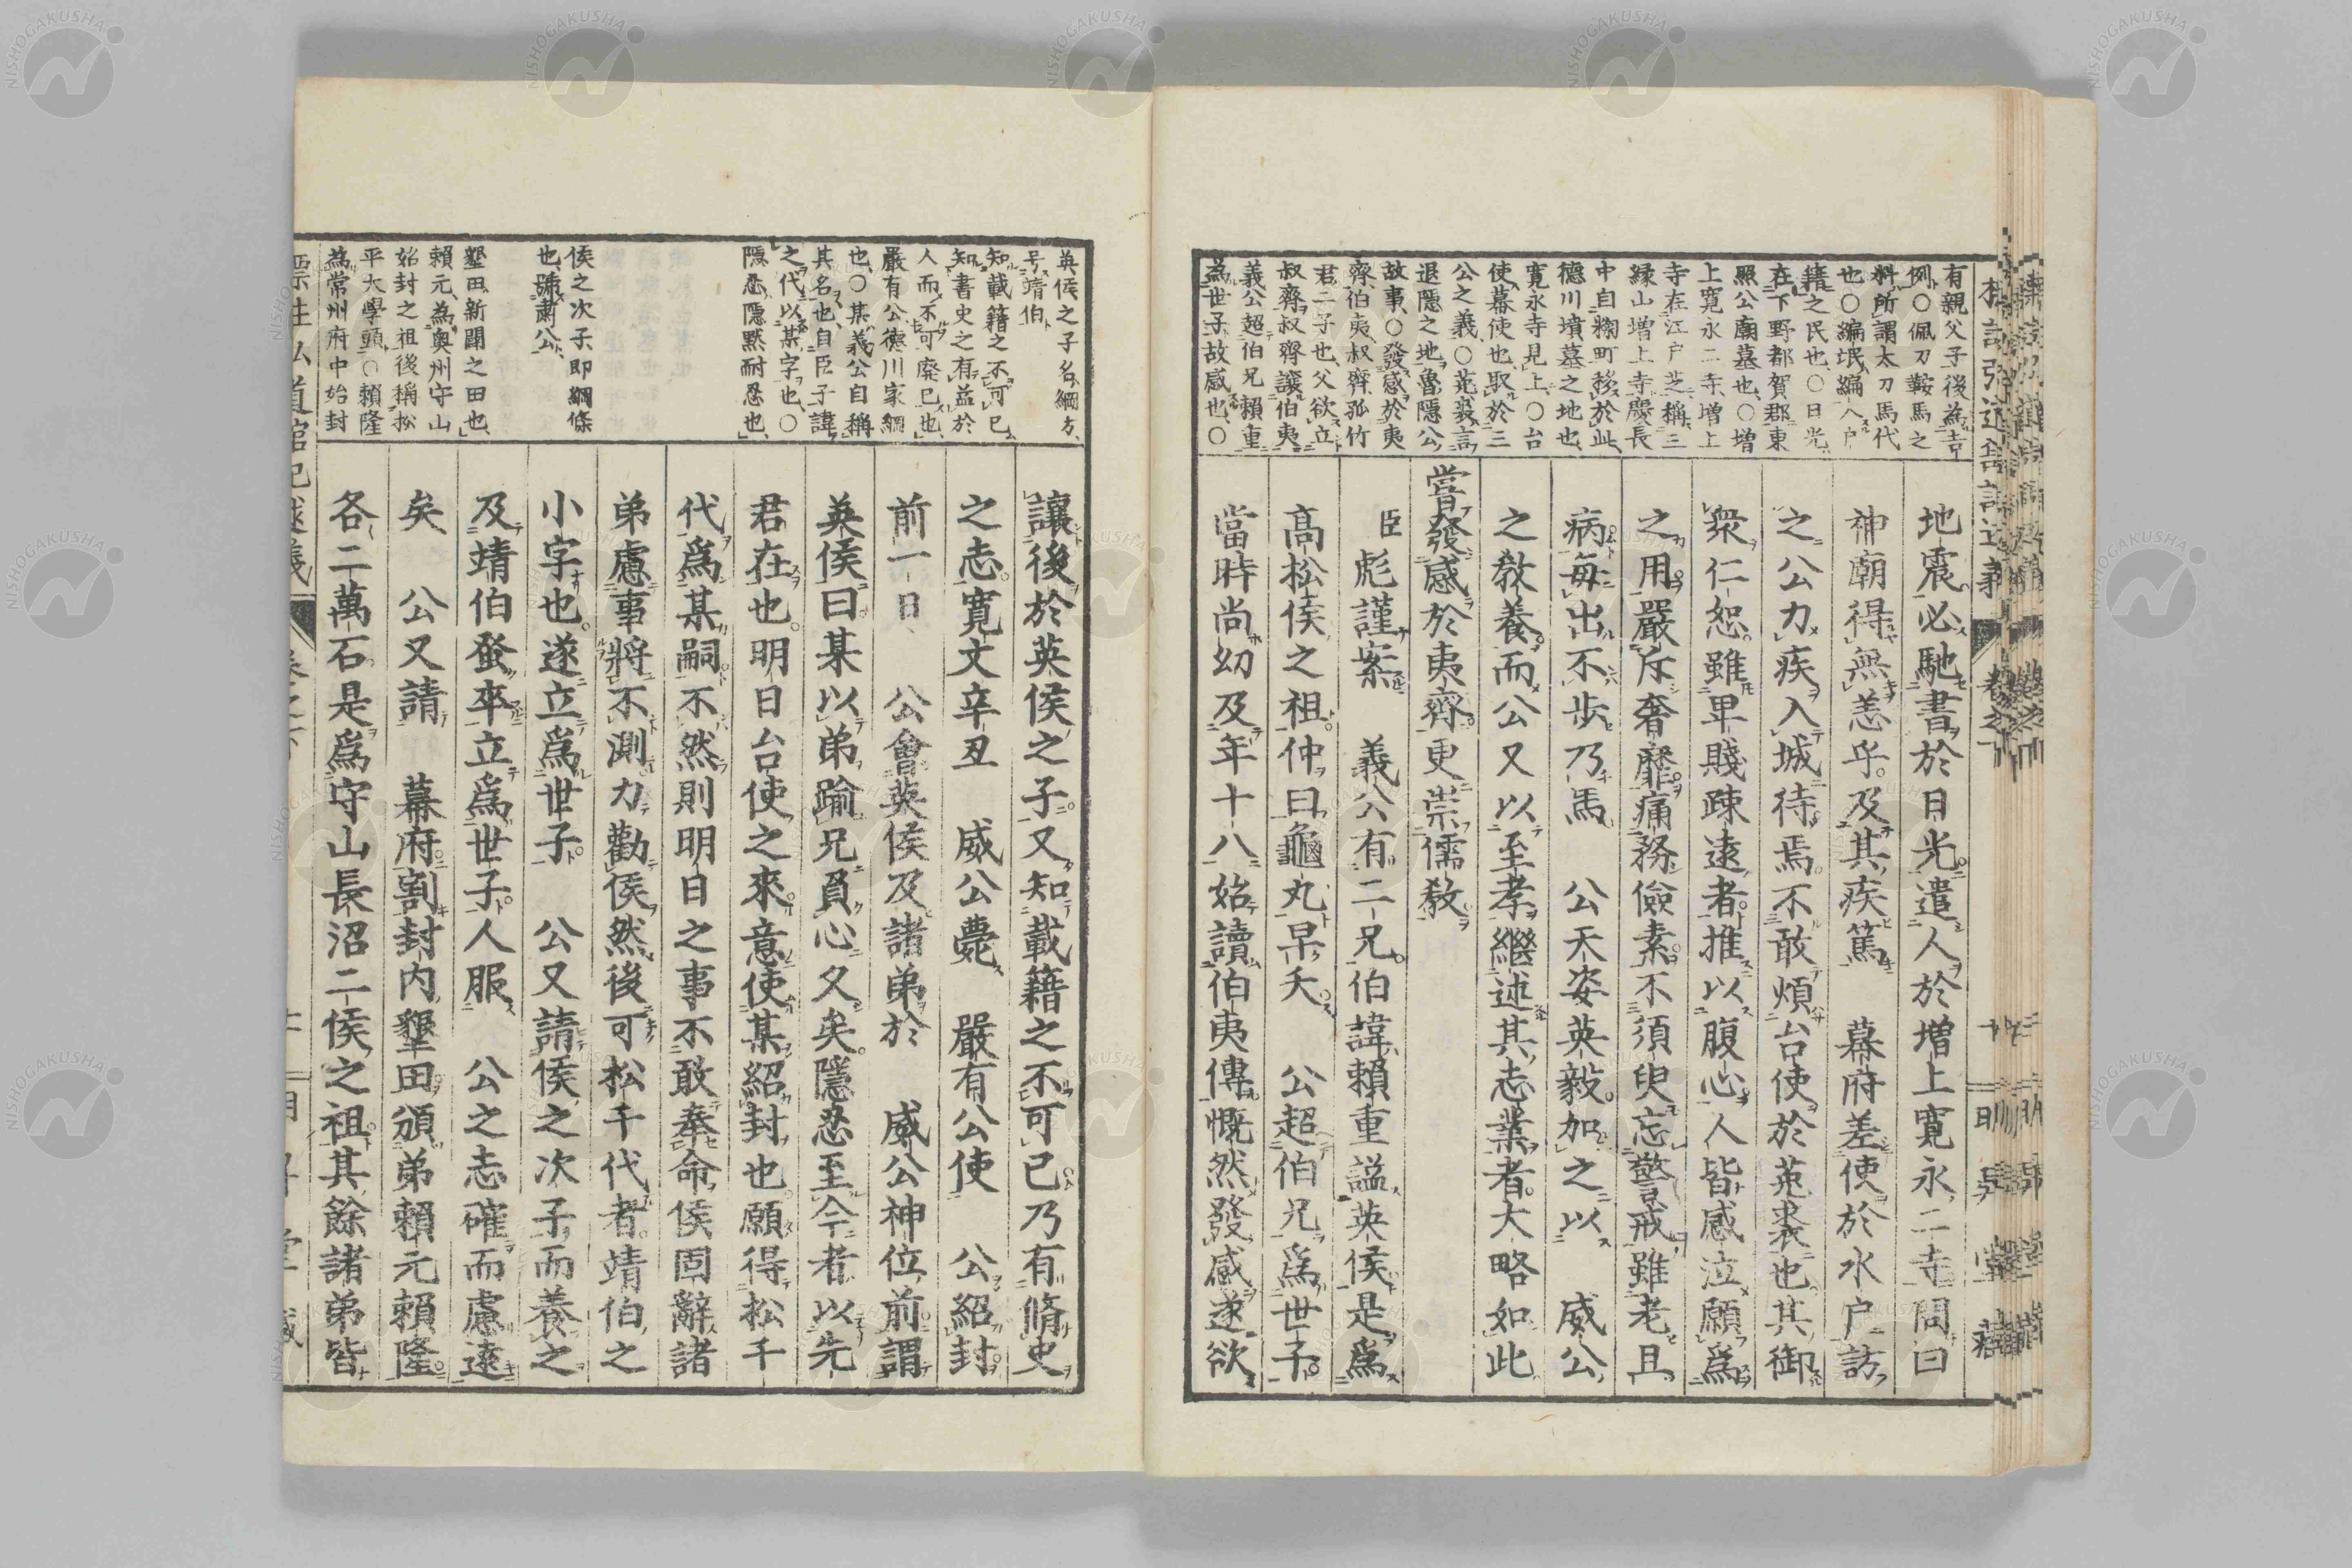 有親父子後為吉
例、○佩刀鞍馬之
料、所謂太刀馬代
也○編垊、編八戸
籍之民也、○日光
在下野都賀郡東
照公廟墓也、○増
上寛永二寺、増上
寺在江戸芝稱三
縁山増上寺慶長
中自糊町移於此、
德川墳墓之地也、
寛永寺見上、○台
使幕使也、取於三
公之義、○菟裘言
退隱之地、魯隱公
故事、○發感於夷
齊、伯夷、叔齊、孤竹
君二子也、父欲立
叔齊、叔齊讓伯夷
義公超伯兄頼重
為世子、故感也、○
地震必馳書於日光遣人於増上寛永二寺問曰
神廟得無恙乎及其疾篤　幕府差使於水戸訪
之公力疾入城待焉不敢煩台使於菟裘也其御
衆仁恕雖卑賤疎遠者推以腹心人皆感泣願爲
之用嚴斥奢靡痛務儉素不須臾忘警戒雖老且
病毎出不步乃馬　公天姿英毅加之以　威公
之敎養而公又以至孝繼述其志業者大略如此
嘗發感於夷齊更崇儒敎
臣彪謹案　義公有二兄伯諱頼重謚英侯是爲
高松侯之祖仲曰龜丸早夭　公超伯兄爲世子
當時尚幼及年十八始讀伯夷傳慨然發感遂欲
英侯之子名綱方、
号靖伯
知載籍之不可已
知書史之有益於
人而不可廃已也、
嚴有公德川家綱
也、○某義公自稱
其名也、自臣子諱
之代以某字也、○
隱忍、隱黙耐忍也、
侯之次子即綱條
也、號肅公、
墾田、新闢之田也、
頼元為奥州守山
始封之祖後稱松
平大學頭、○頼隆
為常州府中始封
讓後於英侯之子又知載籍之不可已乃有脩史
之志寛文辛丑　威公薨　嚴有公使　公紹封
前一日　公會英侯及諸弟於　威公神位前謂
英侯曰某以弟踰兄負心久矣隱忍至今者以先
君在也明日台使之來意使某紹封也願得松千
代爲某嗣不然則明日之事不敢奉命侯固辭諸
弟慮事將不測力勸侯然後可松千代者靖伯之
小字也遂立爲世子　公又請侯之次子而養之
及靖伯蚤卒立爲世子人服　公之志確而慮遠
矣　公又請　幕府割封内墾田頒弟頼元頼隆
各二萬石是爲守山長沼二侯之祖其餘諸弟皆